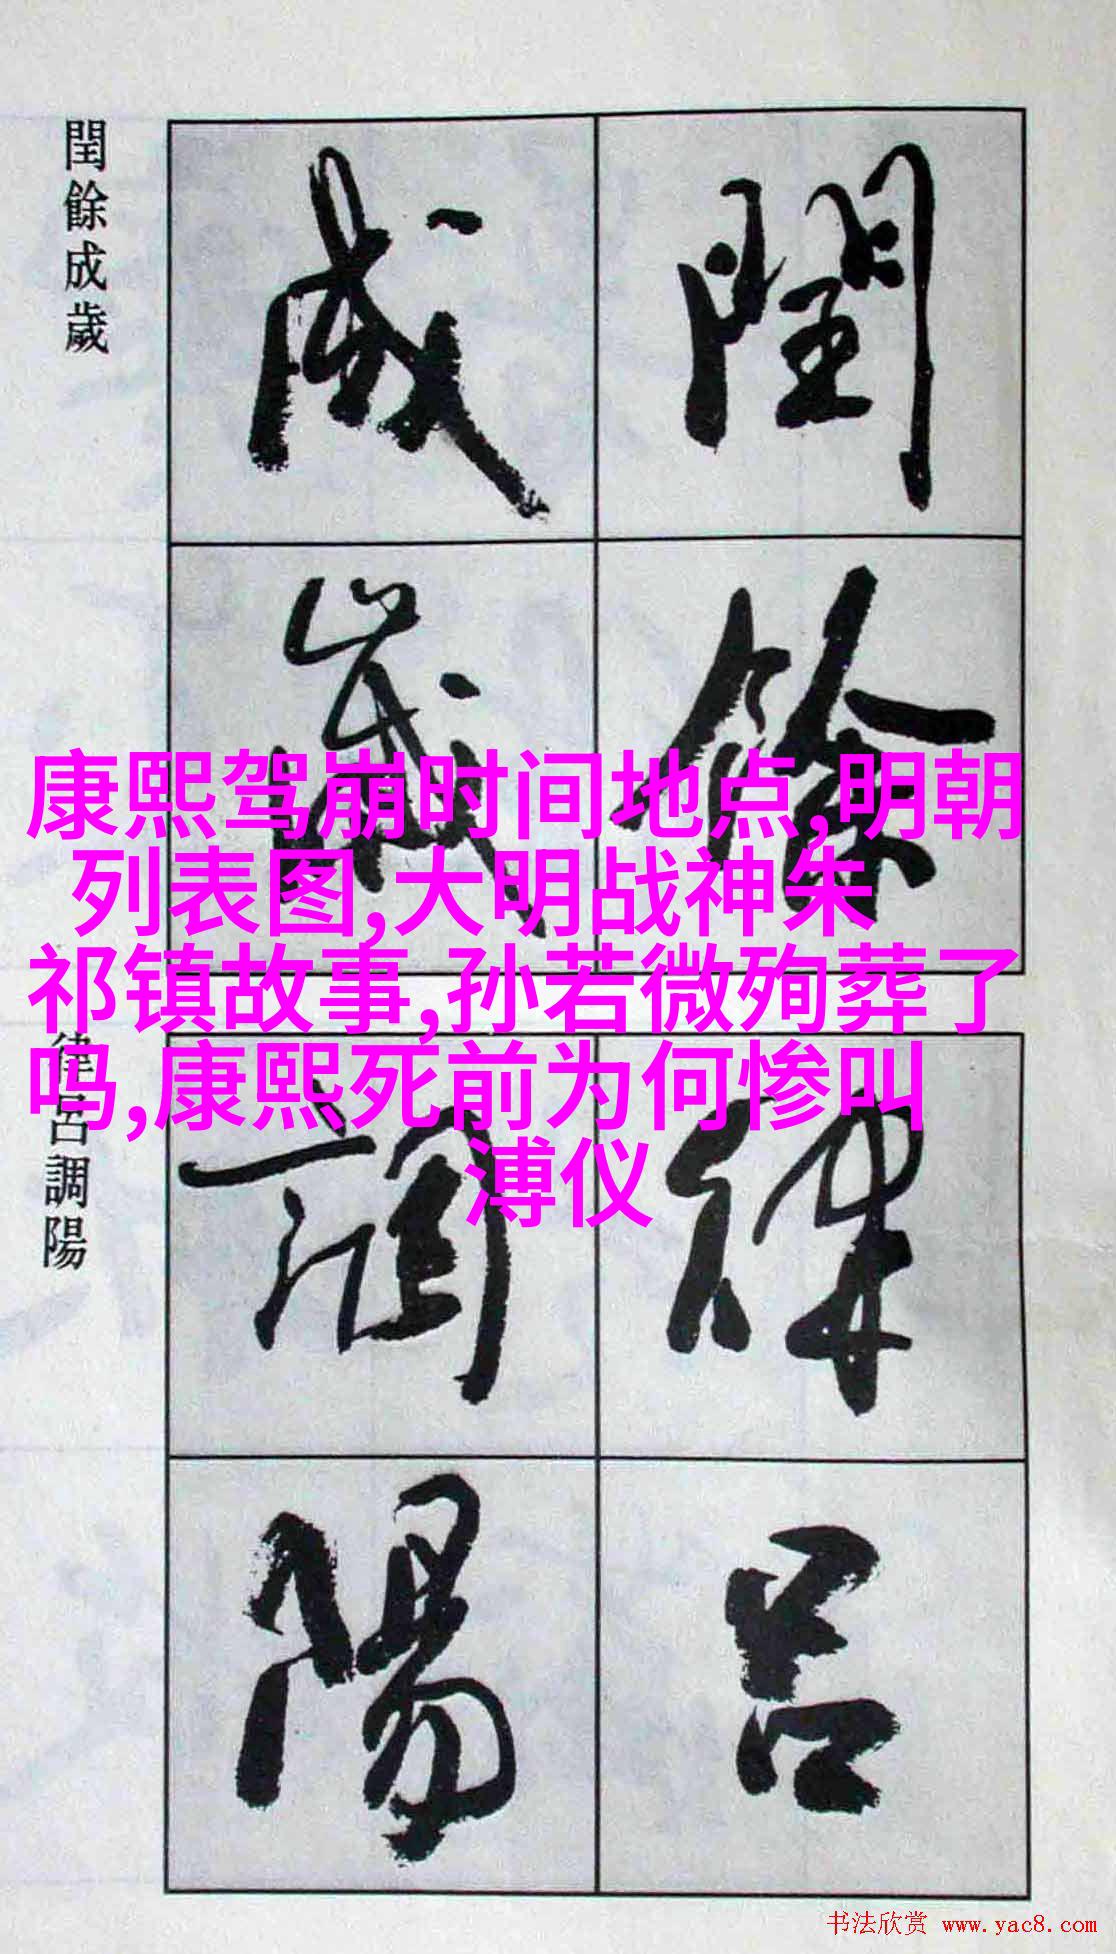 閏餘成歲
閏餘
成歲
康熙驾崩时间地点,明朝
列表图,大明战神朱
祁镇故事,孙若微殉葬了
吗,康熙死前为何惨叫
溥仪
律呂調陽
律呂
調陽
书法欣赏 www.yac8.com